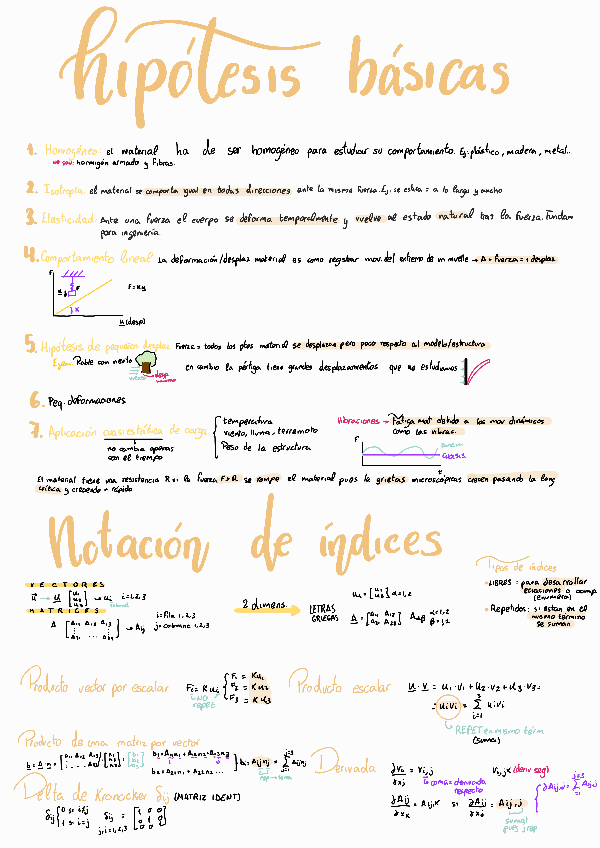 hipótesis básicas
1. Homogéneo: el material ha de ser homogéneo para estudiar su comportamiento. Ej: plástico, madera, metal...
no son: hormigón armado y fibras.
2. Isotropía: el material se comporta igual en todas direcciones ante la misma fuerza. Ej: se estira = a lo largo y ancho
3. Elasticidad: Ante una fuerza el cuerpo se deforma temporalmente y vuelve al estado natural tras la fuerza. Fundam
para ingeniería
4. Comportamiento lineal: La deformación/desplaz material es como registrar mov. del extremo de un muelle → A + fuerza = + desplaz
F
F = Ku
u (desp)
5. Hipótesis de pequeños desplaz: Fuerza = todos los ptos material se desplazan pero poco respecto al modelo/estructura
Ejem: Roble con viento
viento
desp
en cambio la pértiga tiene grandes desplazamientos que no estudiamos
6. Peq. deformaciones
7. Aplicación cuasiestática de carga
no cambia apenas
con el tiempo
temperatura
viento, lluvia, terremoto
Peso de la estructura
Vibraciones → Fatiga mat debido a los mov dinámicos
como las vibrac.
F
cuasis.
t
El material tiene una resistencia R si la fuerza F>R se rompe el material pues la grietas microscópicas crecen pasando la long
crítica y creciendo + rápido
Notación de índices
VECTORES
i=1,2,3
MATRICES
A → Aij
i = fila 1,2,3
j = columna 1,2,3
2 dimens. →
LETRAS
GRIEGAS
α=1,2
β=1,2
Tipos de índices
• LIBRES: para desarrollar
ecuaciones o comp
(enumera)
• Repetidos: si están en el
mismo término
se suman
Producto vector por escalar
Fi = K ui
F1 = Ku1
F2 = K u2
F3 = K u3
NO
repet
Producto escalar
u · v = u1·v1 + u2·v2 + u3·v3 =
= uivi = Σ uivi
i=1
REPET en mismo term
(suma)
Producto de una matriz por vector
Derivada
la coma = derivada
respecto
(deriv seg)
Delta de Kronocker δij (MATRIZ IDENT)
δij { 0 si i≠j
1 si i=j
i,j=1,2,3
suma!
pues j rep